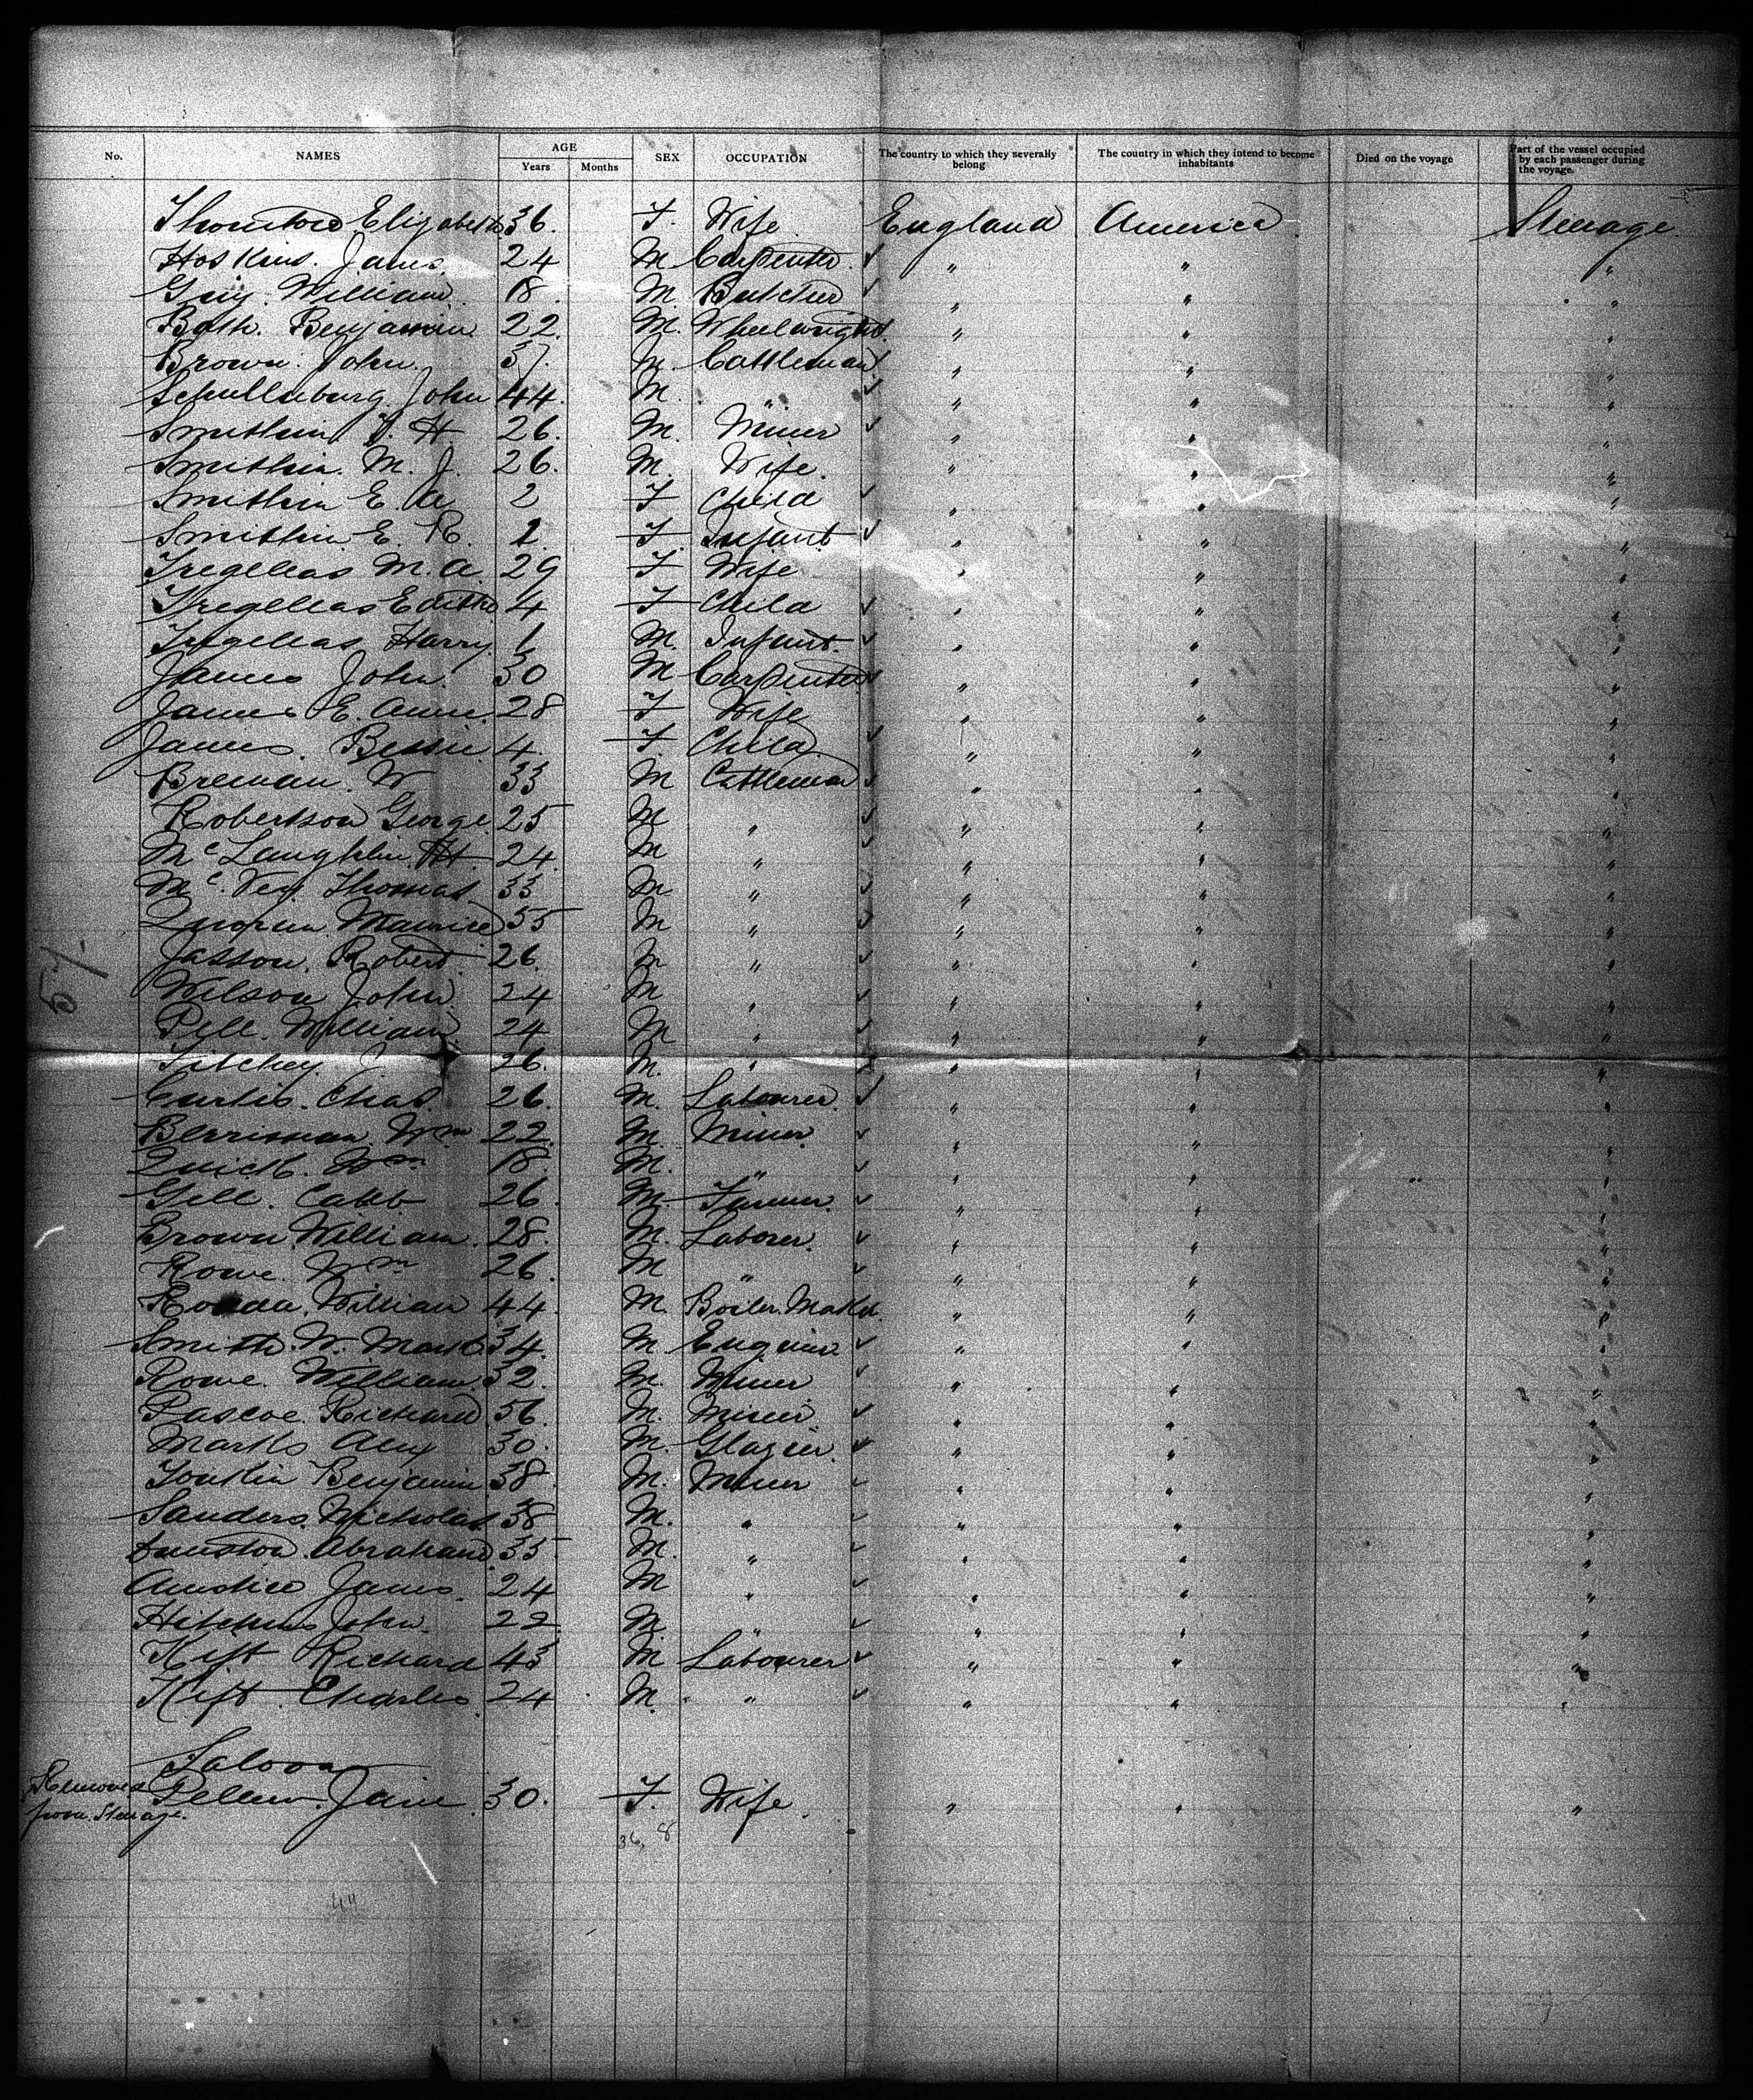 No. NAMES AGE Years Months SEX OCCUPATION The country to which they severally belong The country in which they intend to become inhabitants Died on the voyage Part of the vessel occupied by each passenger during the voyage.
Elizabeth 36. F. Wife England America Steerage
Hoskins. James. 24 M Carpenter. " " "
Guy. William. 18. M. Butcher " " "
Bath. Benjamin. 22. M. Wheelwright. " " "
Brown. John. 37. M. Cattleman " " "
Schullenburg John 44. M. " " " "
Smithin, J. H. 26. M. Miner " " "
Smithin. M. J. 26. M. Wife. " " "
Smithin E. A. 2 F Child " " "
Smithin E. R. 1. F. Infant " " "
Tregelleas M. A. 29 F Wife " " "
Tregelleas Edith 4 F Child " " "
Tregelleas Harry 1 M. Infant. " " "
James John. 30 M Carpenter " " "
James E. Annie. 28 F Wife " " "
James. Bessie 4. F. Child " " "
Breman. W 33 M Cattleman " " "
Robertson George 25 M " " " "
McLaughlin H 24 M " " " "
Mc.Vey Thomas 33 M " " " "
Maurice 55 M " " " "
Jasson. Robert 26. M " " " "
Wilson John 24 M " " " "
Pell. William 24 M " " " "
26. M. " " " "
Curtis. Chas. 26. M. Labourer. " " "
Berriman. Wm 22. M. Miner. " " "
Quick. Wm. 18. M. " " " " "
Gill. Caleb 26. M. Farmer. " " "
Brown. William. 28. M. Laborer. " " "
Rowe. Wm 26. M " " " "
William 44. M. Boiler. Maker. " " "
Smith. W. Mark 34. M Engineer " " "
Rowe. William. 32. M. Miner " " "
Pascoe. Richard 56. M. Miner. " " "
Marks Alex 30. M. Glazier. " " "
Tonkin Benjamin 38 M. Miner " " "
Sanders. Nicholas 38 M. " " " "
Dunstan. Abraham 35 M. " " " "
Anstice James. 24 M " " " "
Hitchins John. 22 M. " " " "
Kift Richard 43 M Labourer " " "
Kift. Charles. 24 M. " " " "
Saloon
Removed from Steerage. Pellew. Jane. 30. F. Wife. " " "
36, 8
44
57